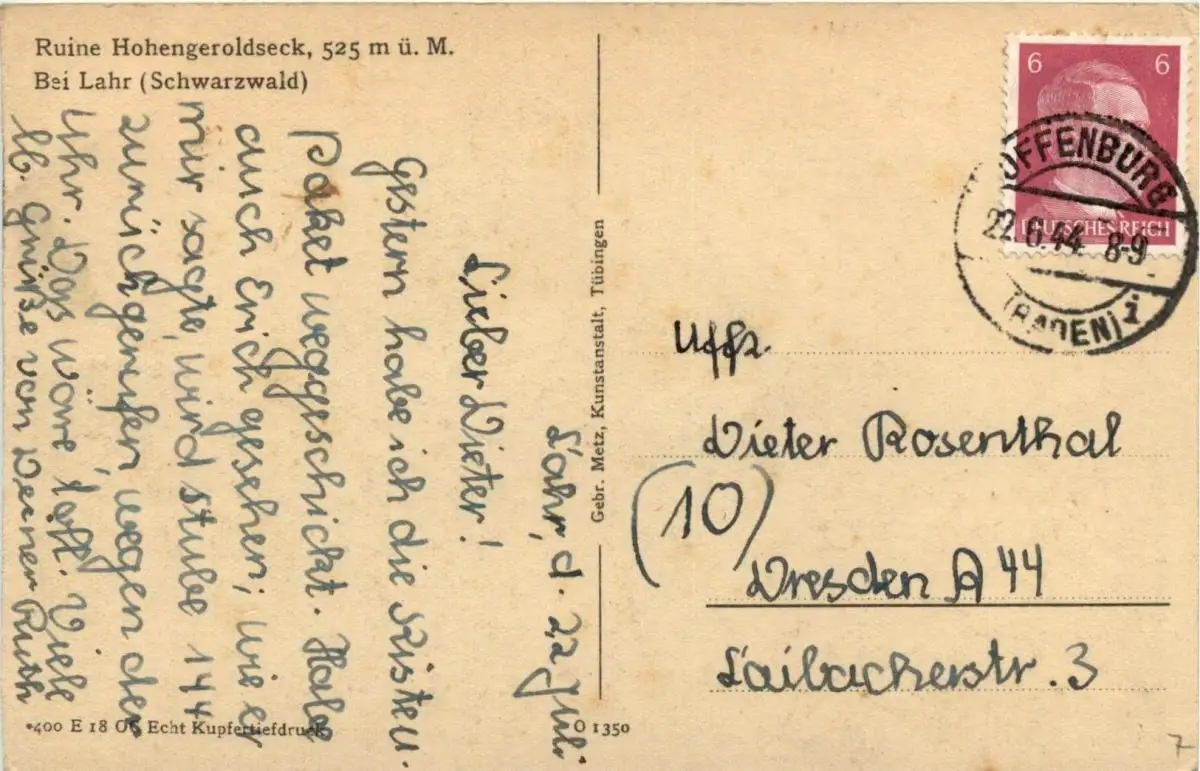 Ruine Hohengeroldseck, 525 m ü. M.
Bei Lahr (Schwarzwald)
Lahr, d. 22 Juli
Lieber Dieter!
Gestern habe ich die Kisten u.
Paket weggeschickt. Habe
auch Erich gesehen; wie er
mir sagte, wird Stube 144
zurückgerufen wegen der
Uhr. Das wäre toff. Viele
lb. Grüße von Werner Ruth
Gebr. Metz, Kunstanstalt, Tübingen
*400 E 18 06 Echt Kupfertiefdruck
O 1350
6 6
DEUTSCHES REICH
OFFENBURG
22.6.44 8-9
(BADEN) 1
Uffz.
Dieter Rosenthal
(10)
Dresden A 44
Laibacherstr. 3
7